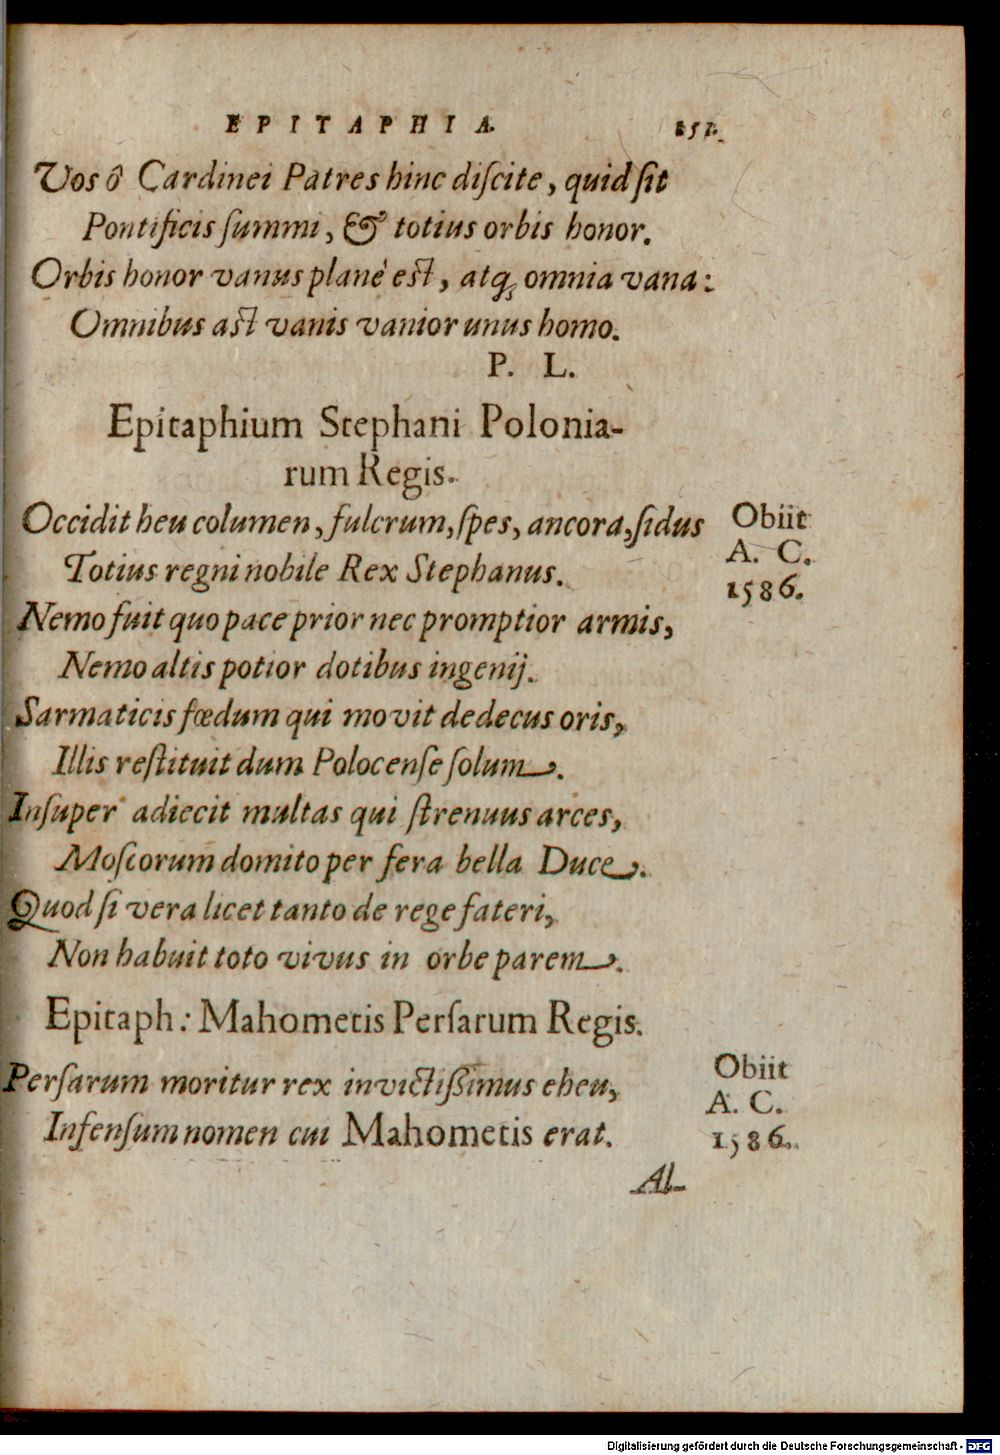 EPITAPHIA. 251.
Vos ô Cardinei Patres hinc diſcite, quid ſit
Pontificis ſummi, & totius orbis honor.
Orbis honor vanus planè eſt, atq; omnia vana:
Omnibus aſt vanis vanior unus homo.
P. L.
Epitaphium Stephani Polonia-
rum Regis.
Occidit heu columen, fulcrum, ſpes, ancora, ſidus
Totius regni nobile Rex Stephanus.
Obiit
A. C.
1586.
Nemo fuit quo pace prior nec promptior armis,
Nemo altis potior dotibus ingenij.
Sarmaticis fœdum qui movit dedecus oris,
Illis reſtituit dum Polocenſe ſolum.
Inſuper adiecit multas qui ſtrenuus arces,
Moſcorum domito per fera bella Duce.
Quod ſi vera licet tanto de rege fateri,
Non habuit toto vivus in orbe parem.
Epitaph.: Mahometis Perſarum Regis.
Perſarum moritur rex invictiſſimus eheu,
Infenſum nomen cui Mahometis erat.
Obiit
A. C.
1586.
Al-
Digitalisierung gefördert durch die Deutsche Forschungsgemeinschaft - DFG